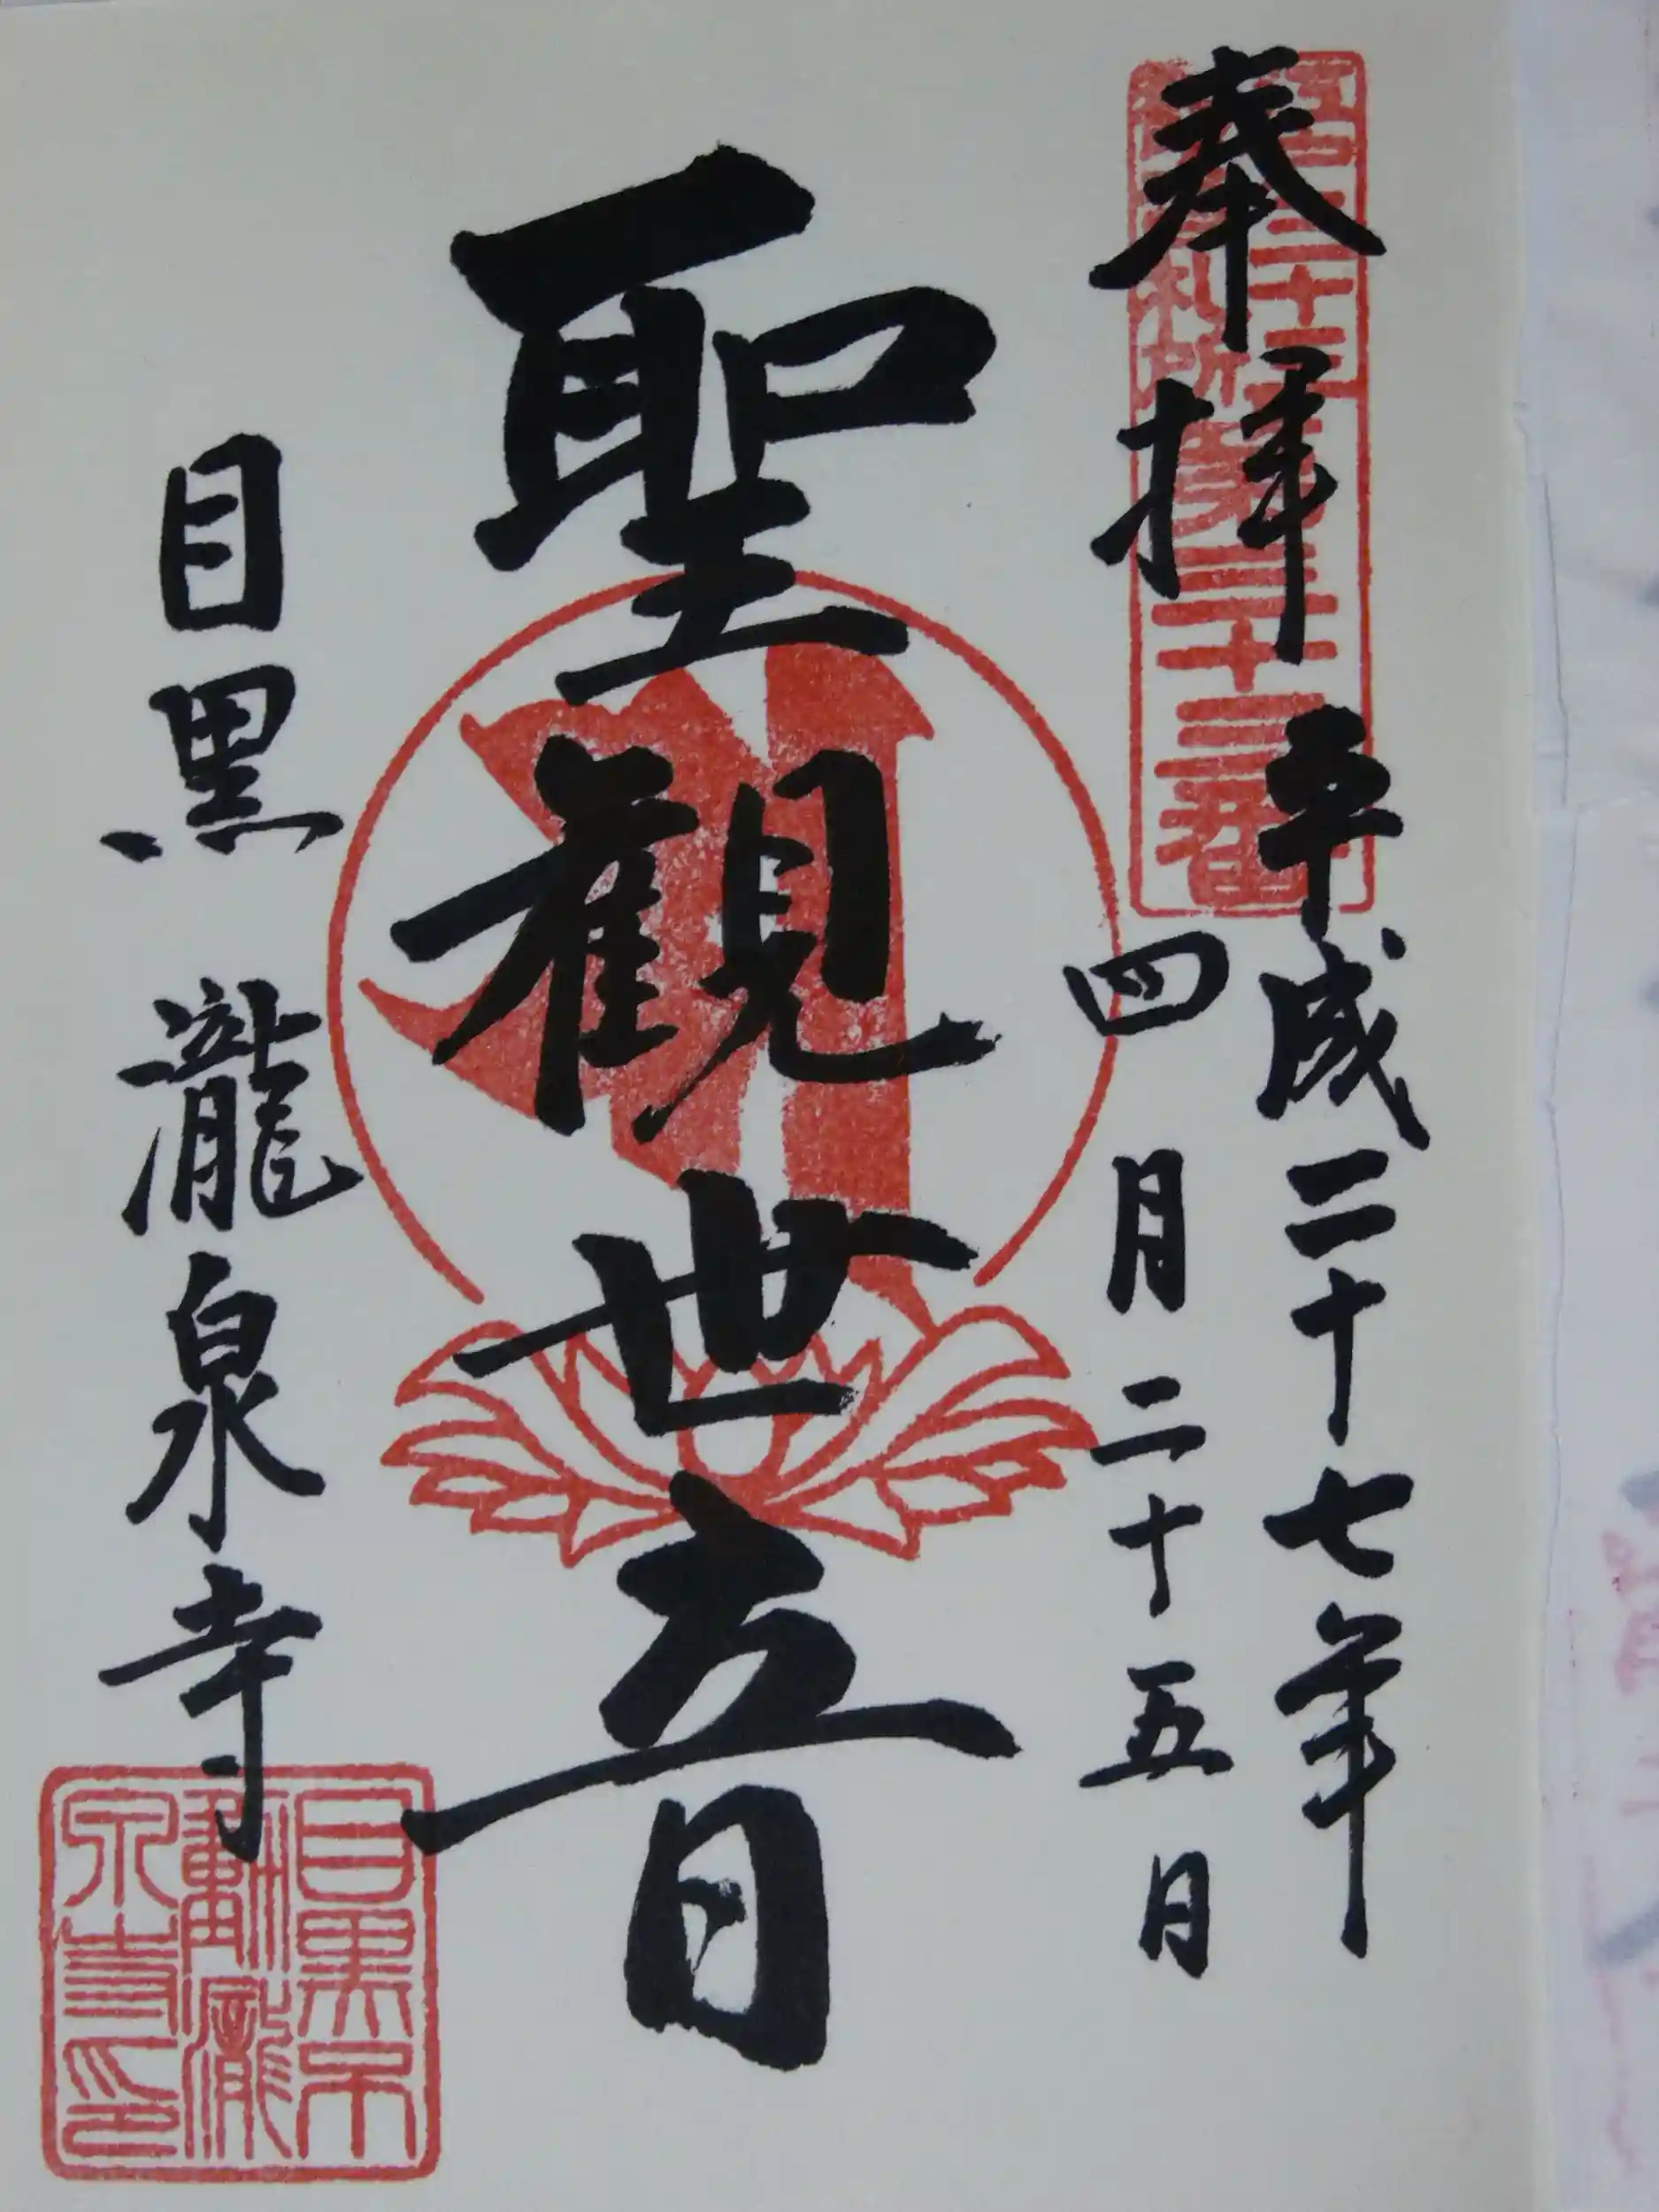 奉拝
平成二十七年
四月二十五日
聖觀世音
目黒 瀧泉寺
三十三
札所第三十三番
目黒不
動瀧
泉寺印